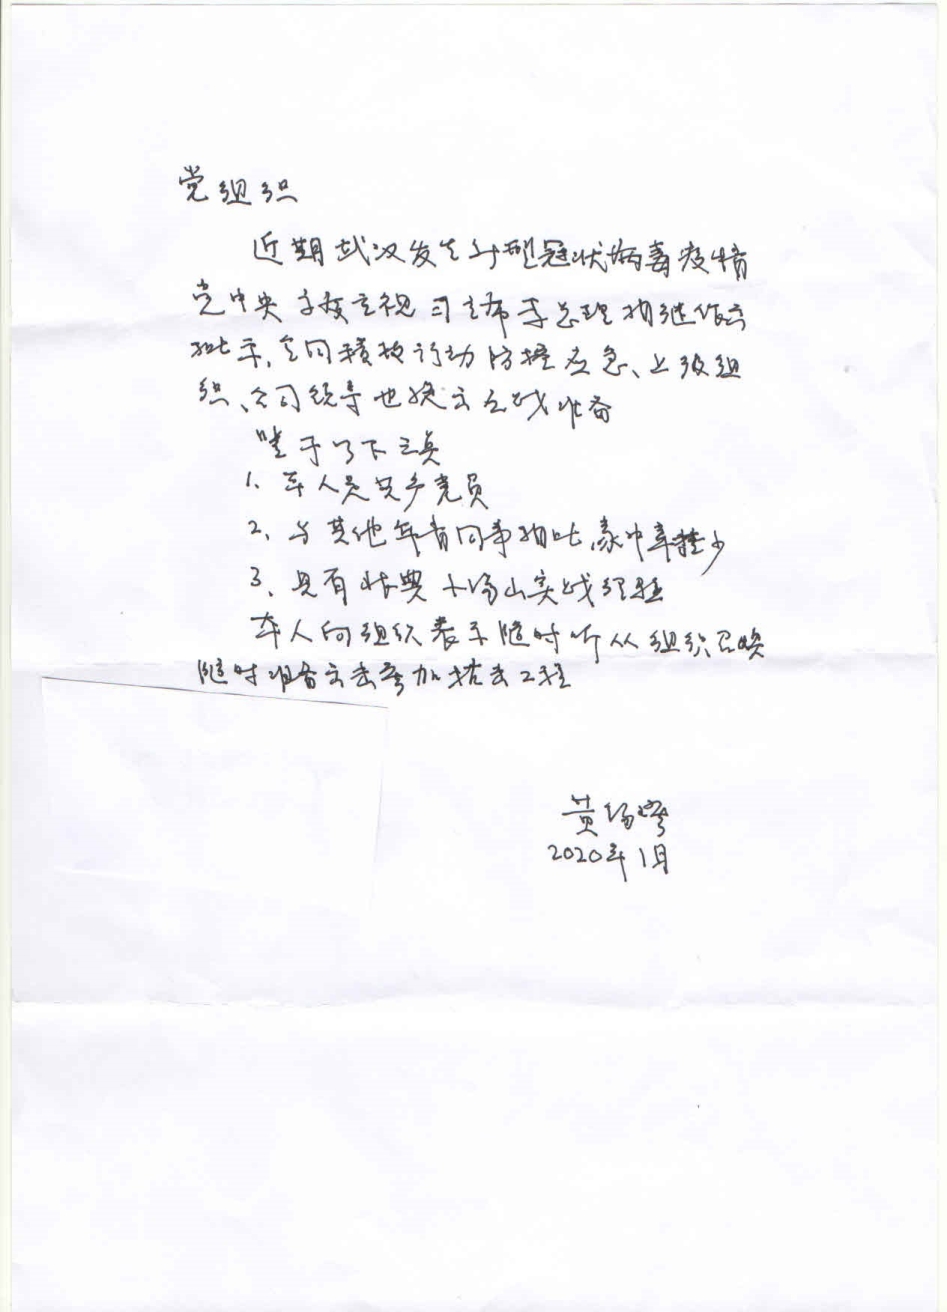 党组织
近期武汉发生新型冠状病毒疫情
党中央高度重视 习主席李总理相继作出
批示,全国积极行动防控应急、上级组
织、公司领导也提出了战准备
鉴于以下三点
1、本人是共产党员
2、与其他年青同事相比,家中牵挂少
3、具有非典小汤山实战经验
本人向组织表示随时听从组织召唤
随时准备出击参加抗击工程
2020年1月